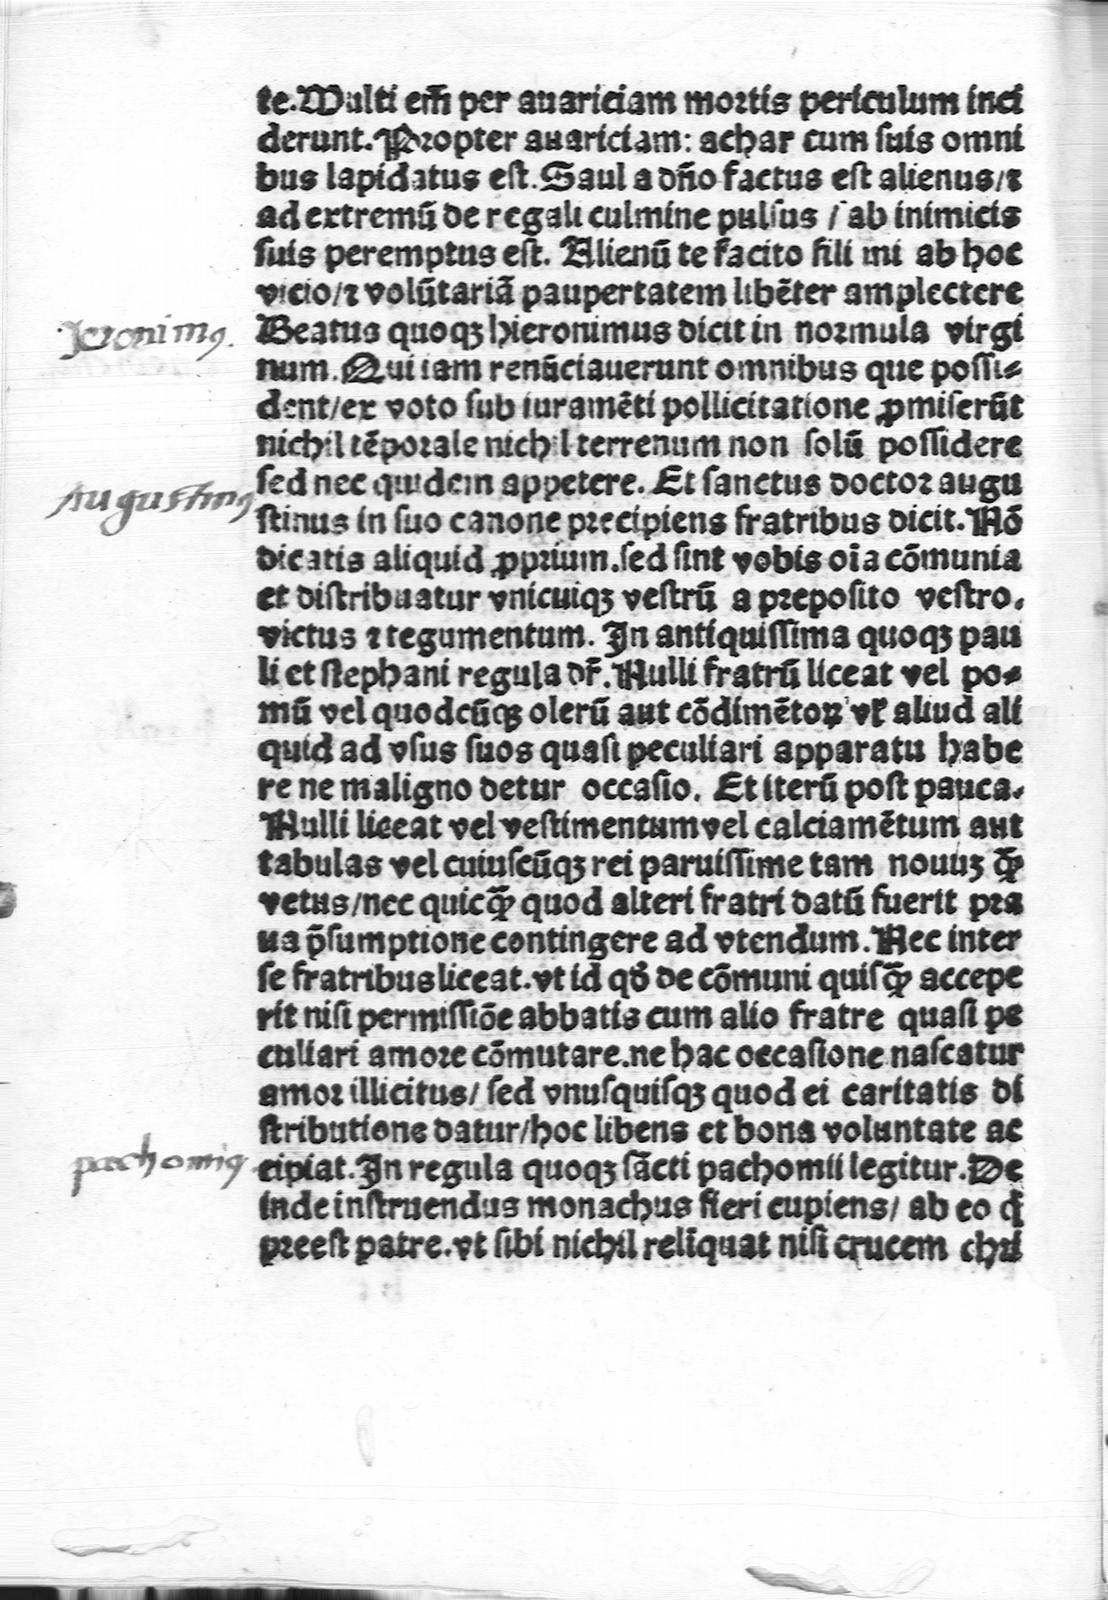 te. Multi em̄ per auariciam mortis periculum inci
derunt. Propter auariciam: achar cum suis omni
bus lapidatus est. Saul a dn̄o factus est alienus/⁊
ad extremū de regali culmine pulsus / ab inimicis
suis peremptus est. Alienū te facito fili mi ab hoc
vicio/⁊ volūtariā paupertatem libēter amplectere
Jeronimꝯ.
Beatus quoqꝫ hieronimus dicit in normula virgi
num. Qui iam renūciauerunt omnibus que possi⸗
dent/ex voto sub iuramēti pollicitatione ꝓmiserūt
nichil tēporale nichil terrenum non solū possidere
Augustinꝯ
sed nec quidem appetere. Et sanctus doctor augu
stinus in suo canone precipiens fratribus dicit. Nō
dicatis aliquid ꝓprium. sed sint vobis oīa cōmunia
et distribuatur vnicuiqꝫ vestrū a preposito vestro.
victus ⁊ tegumentum. In antiquissima quoqꝫ pau
li et stephani regula dr̄. Nulli fratrū liceat vel po⸗
mū vel quodcūqꝫ olerū aut cōdimētoꝝ vł aliud ali
quid ad vsus suos quasi peculiari apparatu habe
re ne maligno detur occasio. Et iterū post pauca.
Nulli liceat vel vestimentum vel calciamētum aut
tabulas vel cuiuscūqꝫ rei paruissime tam nouuꝫ ꝙ̄
vetus/nec quicꝙ̄ quod alteri fratri datū fuerit pra
ua p̄sumptione contingere ad vtendum. Nec inter
se fratribus liceat. vt id qđ de cōmuni quisꝙ̄ accepe
rit nisi permissiōe abbatis cum alio fratre quasi pe
culiari amore cōmutare. ne hac occasione nascatur
amor illicitus/ sed vnusquisqꝫ quod ei caritatis di
stributione datur/hoc libens et bona voluntate ac
pachomiꝯ
cipiat. In regula quoqꝫ sācti pachomii legitur. De
inde instruendus monachus fieri cupiens/ ab eo q̇
preest patre. vt sibi nichil relīquat nisi crucem chri